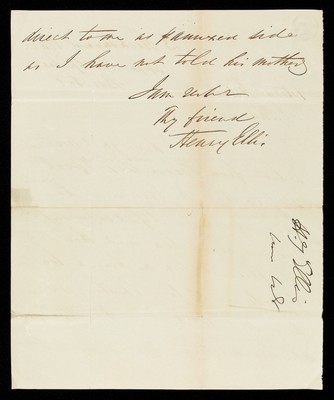 direct to me as annexed side
as I have not told his mother
I am resp
Thy friend
Henry Ellis
Hy Ellis